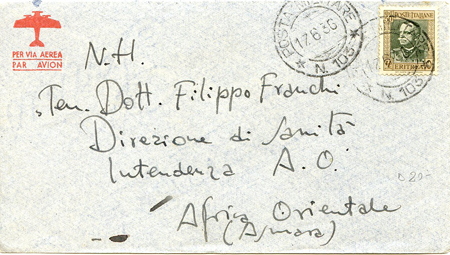 PER VIA AEREA
PAR AVION
POSTA MILITARE
17.6.36
N. 103
POSTE ITALIANE
ERITREA
N. 103
N.H.
Ten. Dott. Filippo Franchi
Direzione di Sanità
Intendenza A. O.
Africa Orientale
(Asmara)